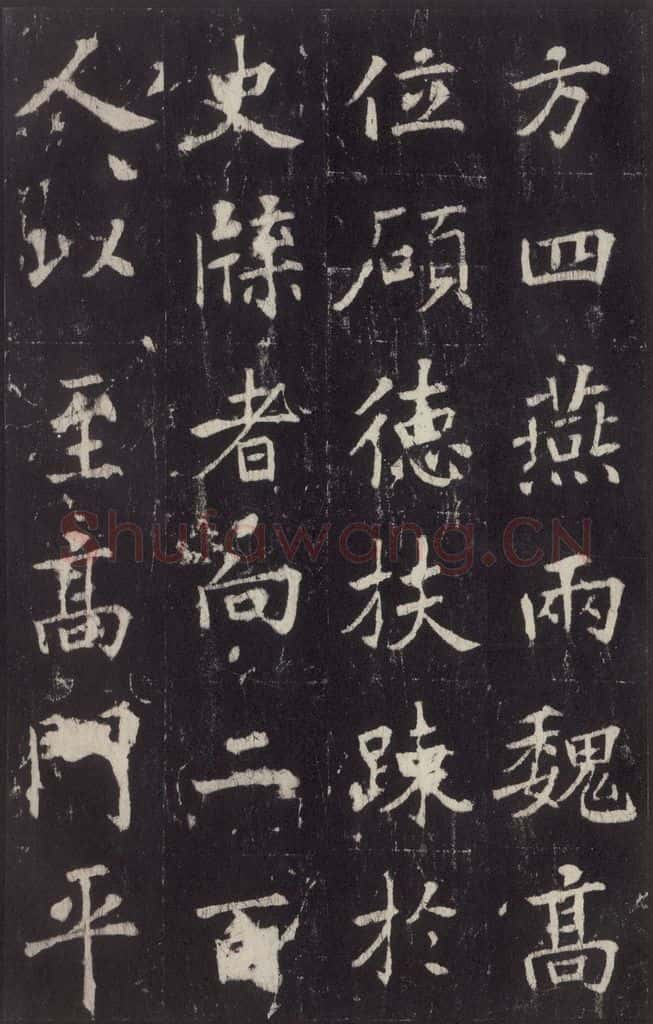 方四燕兩魏髙
位碩徳扶踈於
史牒者向二百
人以至髙門平
Shufawang.CN